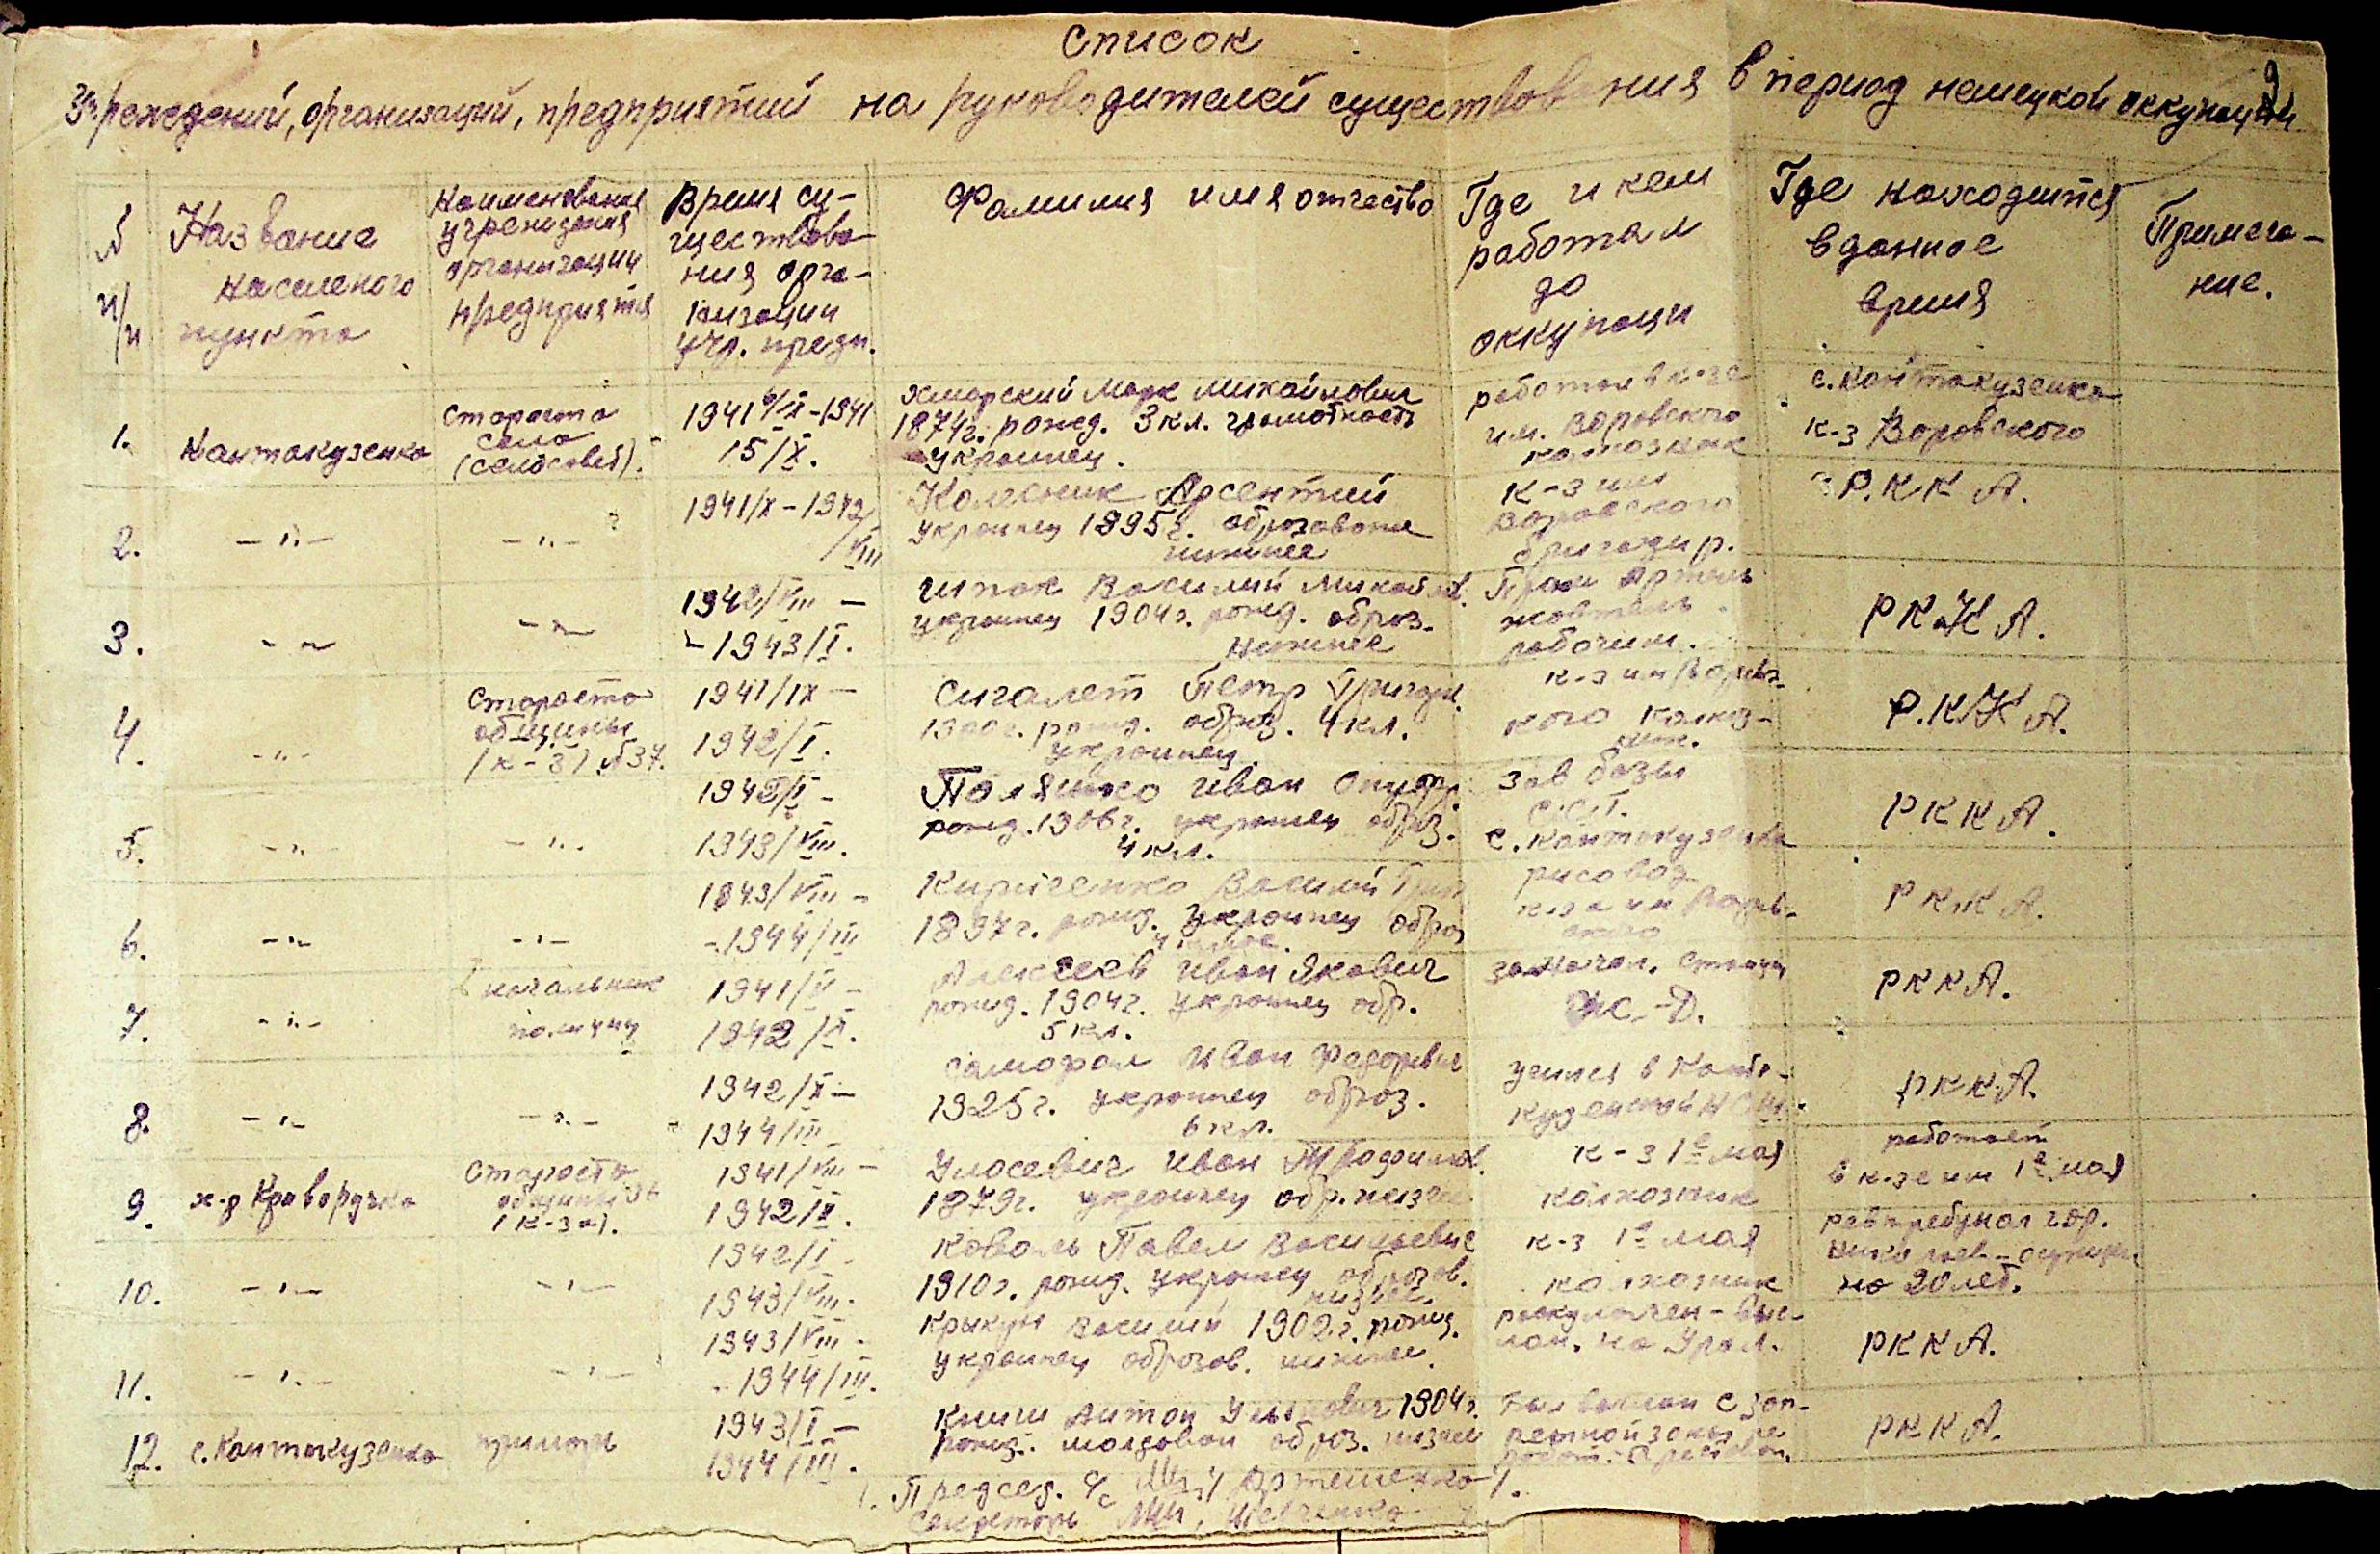 Список
9
Учреждений, организаций, предприятий на руководителей существования в период немецкой оккупации
№ п/п
Название населеного пункта
Наименования учреждения организации предприятия
Время существования организации учр. предп.
Фамилия имя отчество
Где и кем работал до оккупаци
Где находится в данное время
Примечание.
1. Кантакузенка
Староста села (сельсовет).
1941 6/IX-1941 15/X.
Хмарский Марк Михайлович
1874г. рожд. 3 кл. грамотность
украинец.
работал в к-зе им. Воровского колхозник
с. Кантакузенка к-з Воровского
2. -"- -"-
1941/X-1942/VIII
Колесник Арсентий
украинец 1895г. образование
низшее
к-з им Воровского бригадир.
Р.К К А.
3. -"- -"-
1942/VIII - -1943/I.
Василий Михайлов.
украинец 1904г. рожд. образ.
низшее
рабочим.
РККА.
4. -"-
Староста общины (к-з) №37.
1941/IX - 1942/I.
Сигалет Петр Григор.
1900г. рожд. образ. 4 кл.
украинец
к-з им Воровского колхозник.
Р.ККА.
5. -"- -"-
1942/I - 1943/VIII.
Иван
рожд. 1906г. украинец образ.
4 кл.
Зав базы
с. Кантакузенка
РККА.
6. -"- -"-
1943/VIII - -1944/III
Кириченко Василий Григ
1897г. рожд. украинец образ
РККА.
7. -"-
начальник полиции
1941/ - 1942/X.
Алексеев Иван Якович
рожд. 1904г. украинец обр.
5 кл.
зам начал. станции
Ж.-Д.
РККА.
8. -"- -"-
1942/X - 1944/III
Иван Федорович
1925г. украинец образ.
6 кл.
учился в Кантакузенской НСШ.
РККА.
9. х-р Криворучка
Староста общины (к-за).
1941/VIII - 1942/I.
Иван Трофимов.
1879г. украинец обр. низшее
к-з 1е мая
колхозник
работает
в к-зе им 1е мая
10. -"- -"-
1942/I - 1943/VIII.
Коваль Павел Васильевич
1910г. рожд. украинец образов.
низшее.
к-з 1е мая
колхозник
гор.
на 20 лет.
11. -"- -"-
1943/VIII - -1944/III.
Крыкун Василий 1902г. рожд.
украинец образов. низшее.
раскулачен - выслан. на Урал.
РККА.
12. с. Кантакузенка
1943/I - 1944/III.
Книш Антон 1904г.
рожд. молдован образ. низшее
РККА.
Председ. с/с /Артеменко/.
Секретарь Шевченко